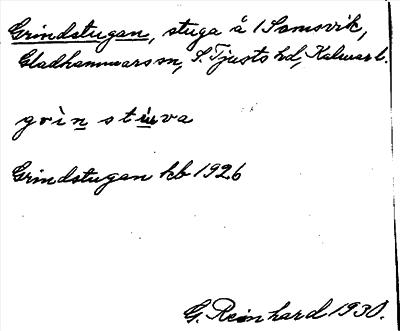 Grindstugan, stuga å 1 Somsvik,
Gladhammars sn, S. Tjusts hd, Kalmar l.
grìn stúva
Grindstugan kb 1926
G. Reinhard 1930.